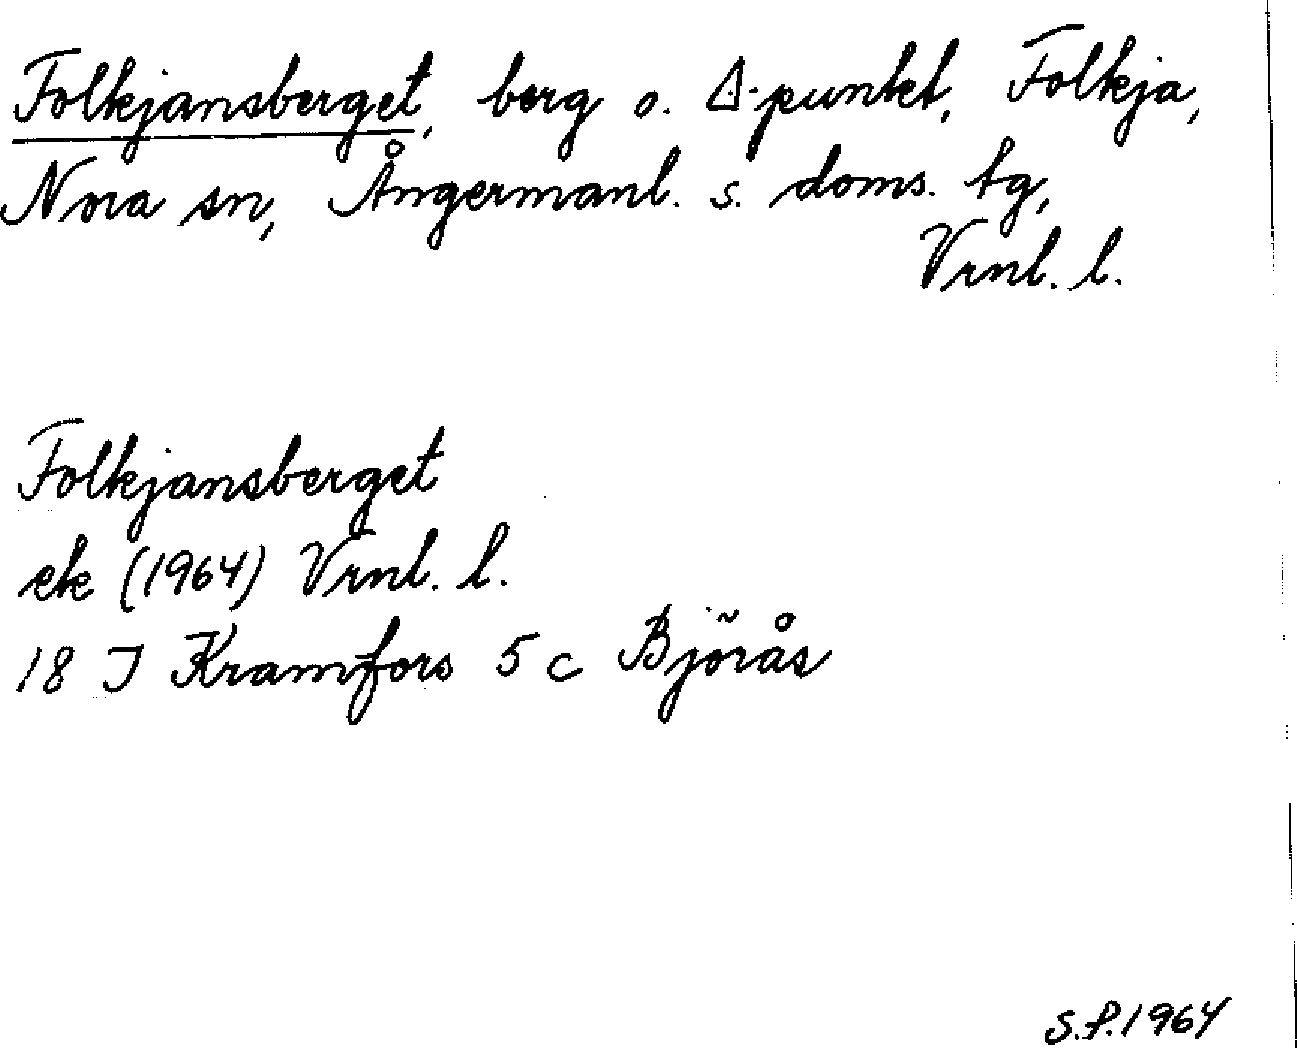 Folkjansberget, berg o. Δ-punkt, Folkja,
Nora sn, Ångermanl. s. doms. tg,
Vrnl. l.
Folkjansberget
ek (1964) Vrnl. l.
18 J Kramfors 5 c Björås
S.P.1964